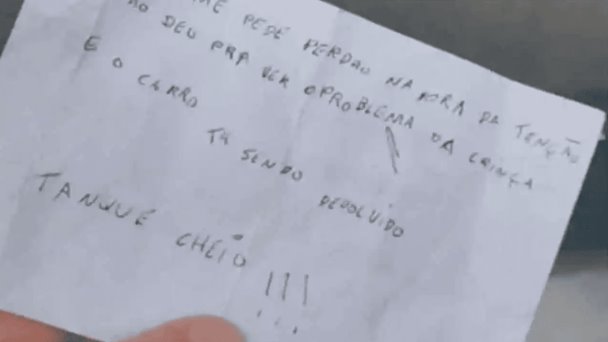 ME PEDE PERDÃO NA HORA DA TENÇÃO
NO DEU PRA VER O PROBLEMA DA CRINÇA
E O CARRO TA SENDO DEVOLVIDO
TANQUE CHEIO !!!